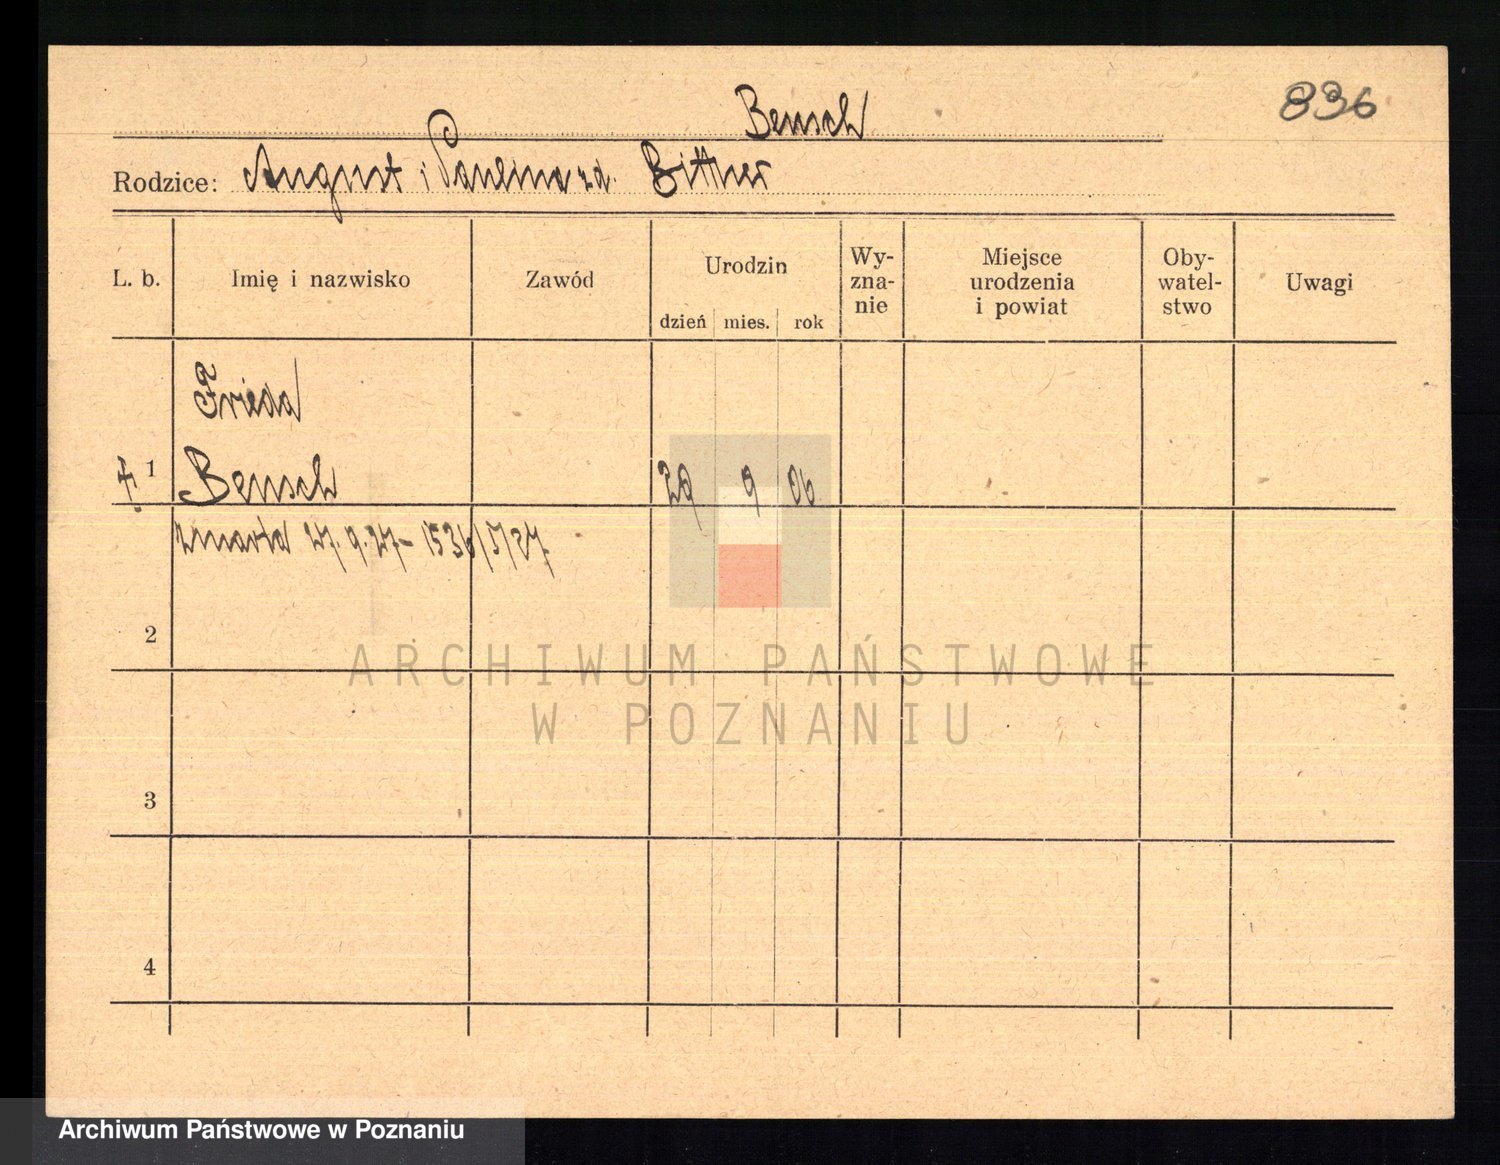 836
Bensch
Rodzice: August i Paulina zd. Bittner
L. b. Imię i nazwisko Zawód Urodzin Wy-zna-nie Miejsce urodzenia i powiat Oby-watel-stwo Uwagi
dzień mies. rok
Frieda
† 1 Bensch 29 9 06
zmarła 27. 9. 27 - 1536/V/27.
2
ARCHIWUM PAŃSTWOWE
W POZNANIU
3
4
Archiwum Państwowe w Poznaniu